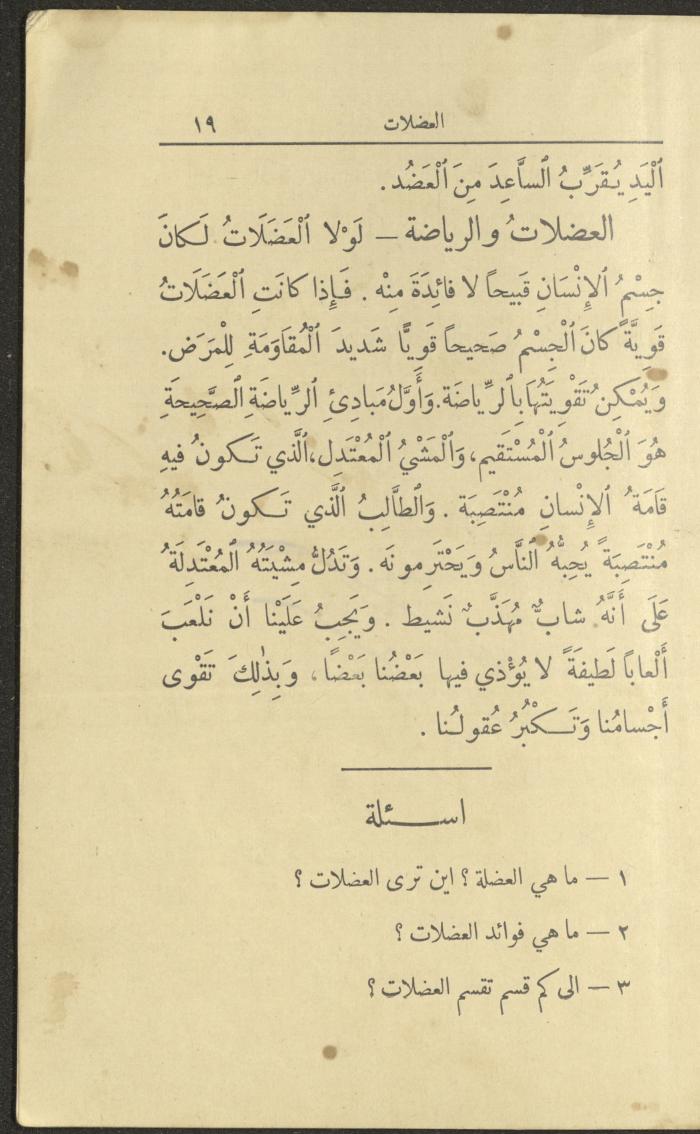 العضلات ١٩
ٱلْيَدِ يُقَرِّبُ ٱلسَّاعِدَ مِنَ ٱلْعَضُد.
العضلاتُ والرياضة – لَوْلا ٱلْعَضَلَاتُ لَكانَ
جِسْمُ ٱلإِنْسَانِ قَبيحاً لا فائِدَةَ مِنْه . فَإِذا كانَتِ ٱلْعَضَلَاتُ
قَوِيَّةً كانَ ٱلْجِسْمُ صَحيحاً قَوِيًّا شَديدَ ٱلْمُقَاوَمَةِ لِلْمَرَض.
وَيُمْكِنُ تَقْوِيَتُهَا بِٱلرِّياضَة. وَأَوَّلُ مَبادِئِ ٱلرِّياضَةِ ٱلصَّحِيحَةِ
هُوَ ٱلْجُلوسُ ٱلْمُسْتَقيم، وَٱلْمَشْيُ ٱلْمُعْتَدِل، ٱلَّذي تَكونُ فيهِ
قَامَةُ ٱلإِنْسانِ مُنْتَصِبَة . وَٱلطَّالِبُ ٱلَّذي تَكونُ قامَتُهُ
مُنْتَصِبَةً يُحِبُّهُ ٱلنَّاسُ وَيَحْتَرِمونَه . وَتَدُلُّ مِشْيَتُهُ ٱلمُعْتَدِلَةُ
عَلَى أَنَّهُ شابٌّ مُهَذَّبٌ نَشيط . وَيَجِبُ عَلَيْنا أَنْ نَلْعَبَ
أَلْعاباً لَطيفَةً لا يُؤْذي فيها بَعْضُنا بَعْضًا، وَبِذٰلِكَ تَقْوى
أَجْسامُنا وَتَكْبُرُ عُقولُنا .
اسئلة
١ – ما هي العضلة ؟ اين ترى العضلات ؟
٢ – ما هي فوائد العضلات ؟
٣ – الى كم قسم تقسم العضلات ؟